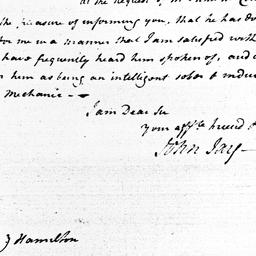 at the request of
the pleasure of informing you, that he has do
for me in a manner that I am satisfied with
have frequently heard him spoken of, and
him as being an intelligent sober & indu
Mechanic —
I am Dear Sir
Your aff.te friend
John Jay
Hamilton